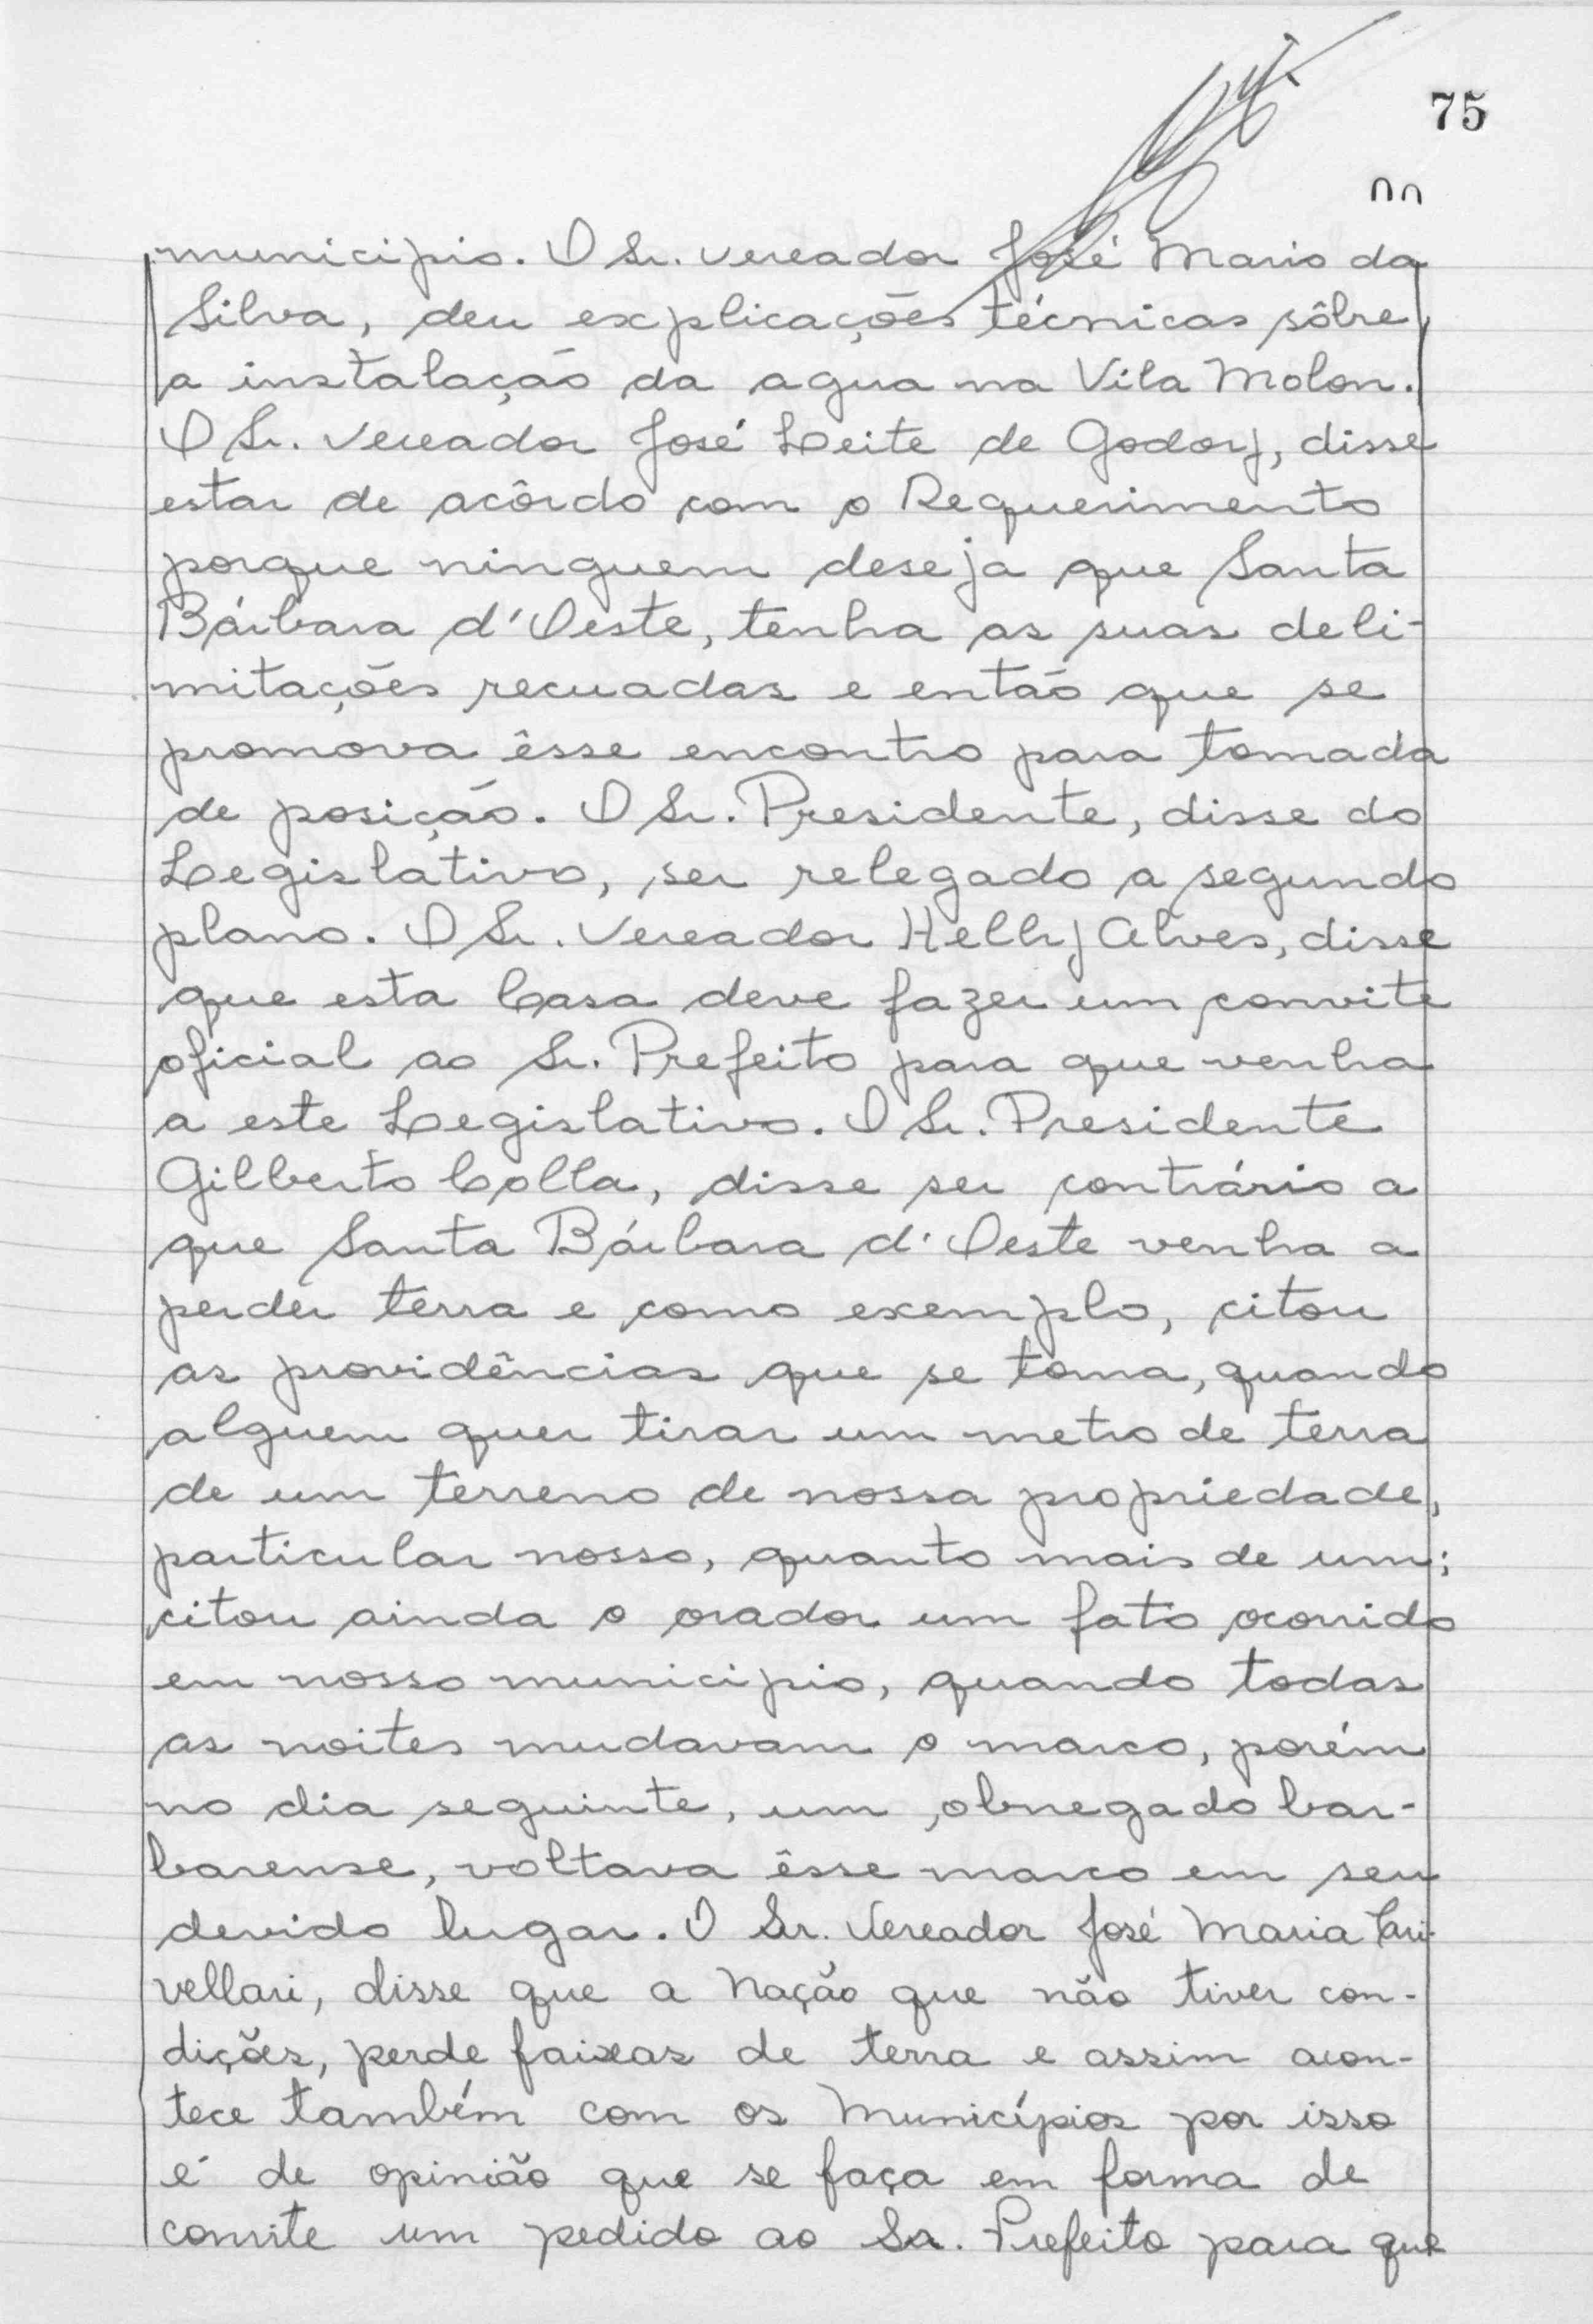 75
municipio. O Sr. vereador José Mario da
Silva, deu explicações técnicas sôbre
a instalação da agua na Vila Molon.
O Sr. Vereador José Leite de Godoy, disse
estar de acôrdo com o Requerimento
porque ninguem deseja que Santa
Bárbara d'Oeste, tenha as suas deli-
mitações recuadas e então que se
promova êsse encontro para tomada
de posição. O Sr. Presidente, disse do
Legislativo, ser relegado a segundo
plano. O Sr. Vereador Helly Alves, disse
que esta Casa deve fazer um convite
oficial ao Sr. Prefeito para que venha
a este Legislativo. O Sr. Presidente
Gilberto Colla, disse ser contrário a
que Santa Bárbara d'Oeste venha a
perder terra e como exemplo, citou
as providências que se toma, quando
alguem quer tirar um metro de terra
de um terreno de nossa propriedade,
particular nosso, quanto mais de um;
citou ainda o orador um fato ocorrido
em nosso municipio, quando todas
as noites mudavam o marco, porém
no dia seguinte, um obnegado bar-
barense, voltava êsse marco em seu
devido lugar. O Sr. Vereador José Maria Cri-
vellari, disse que a Nação que não tiver con-
dições, perde faixas de terra e assim acon-
tece também com os Municípios por isso
é de opinião que se faça em forma de
convite um pedido ao Sr. Prefeito para que